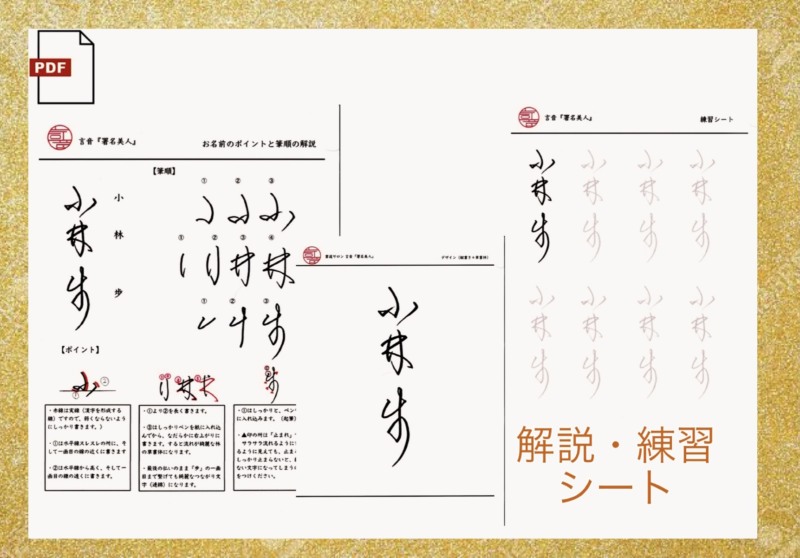 PDF
言音『署名美人』
お名前のポイントと筆順の解説
【筆順】
小林歩
小
林
歩
① ② ③
① ② ③ ④
① ② ③
【ポイント】
・赤線は実線（漢字を形成する
線）ですので、弱くならないように
しっかり書きます。）
・①は水平線スレスレの所に、そ
して一画目の線の近くに書きます
・②は水平線から高く、そして一
画目の線の近くに書きます。
・①より②を長く書きます。
・③はしっかりペンを紙に入れ込
んでから、なだらかに右上がりに
書きます。すると流れが綺麗な林
の草書体になります。
・最後の払いのまま「歩」の一画
目まで繋げても綺麗なつながり文
字（連綿）になります。
・①はしっかりと、ペン
に入れ込みます。（起筆）
・▲印の所は「止まれ」
サラサラ流れるように
るように見えても、止ま
しっかり止まらないと、
ない文字になってしまう
をつけください。
言音『署名美人』
小林歩
言音『署名美人』
練習シート
小林歩 小林歩 小林歩 小林歩
小林歩 小林歩 小林歩 小林歩
解説・練習
シート